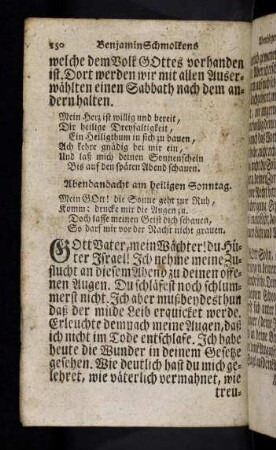 150 Benjamin Schmolkens
welche dem Volk GOttes vorhanden
ist. Dort werden wir mit allen Auser-
wählten einen Sabbath nach dem an-
dern halten.
Mein Herz ist willig und bereit,
Dir heilige Dreyfaltigkeit,
Ein Heiligthum in sich zu bauen,
Ach kehre gnädig bei mir ein,
Und laß mich deinen Sonnenschein
Bis auf den späten Abend schauen.
Abendandacht am heiligen Sonntag.
Mein GOtt! die Sonne geht zur Ruh,
Komm: drucke mir die Augen zu.
Doch lasse meinen Geist dich schauen,
So darf mir vor der Nacht nicht grauen.
GOtt Vater, mein Wächter! du Hü-
ter Israel! Ich nehme meine Zu-
flucht an diesem Abend zu deinen offe-
nen Augen. Du schläfest noch schlum-
merst nicht. Ich aber muß beydes thun
daß der müde Leib erquicket werde.
Erleuchte demnach meine Augen, daß
ich nicht im Tode entschlafe. Ich habe
heute die Wunder in deinem Gesetze
gesehen. Wie deutlich hast du mich ge-
lehret, wie väterlich vermahnet, wie
treu-